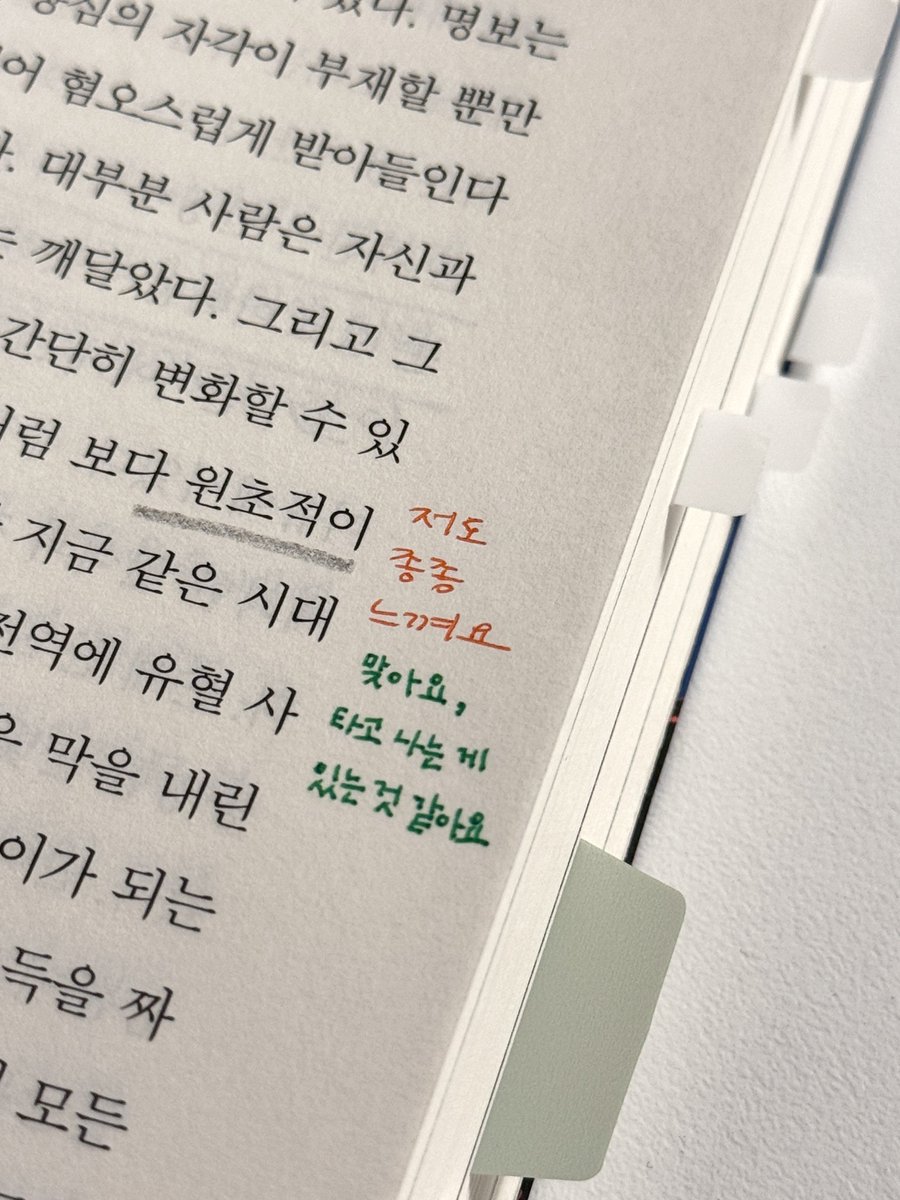 있다. 명보는
양심의 자각이 부재할 뿐만
혐오스럽게 받아들인다
대부분 사람은 자신과
깨달았다. 그리고 그
간단히 변화할 수 있
처럼 보다 원초적이
저도
지금 같은 시대
종종
느껴요
전역에 유혈 사
맞아요,
타고 나는 게
막을 내린
있는 것 같아요
이가 되는
득을 짜
모든